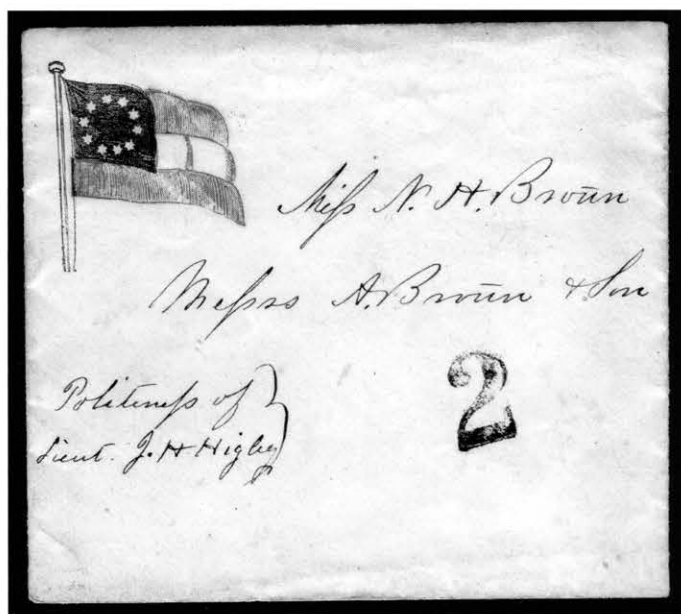 Miss N. H. Brown
Messrs A. Brown & Son
2
Politeness of
Lieut. J. H Higley